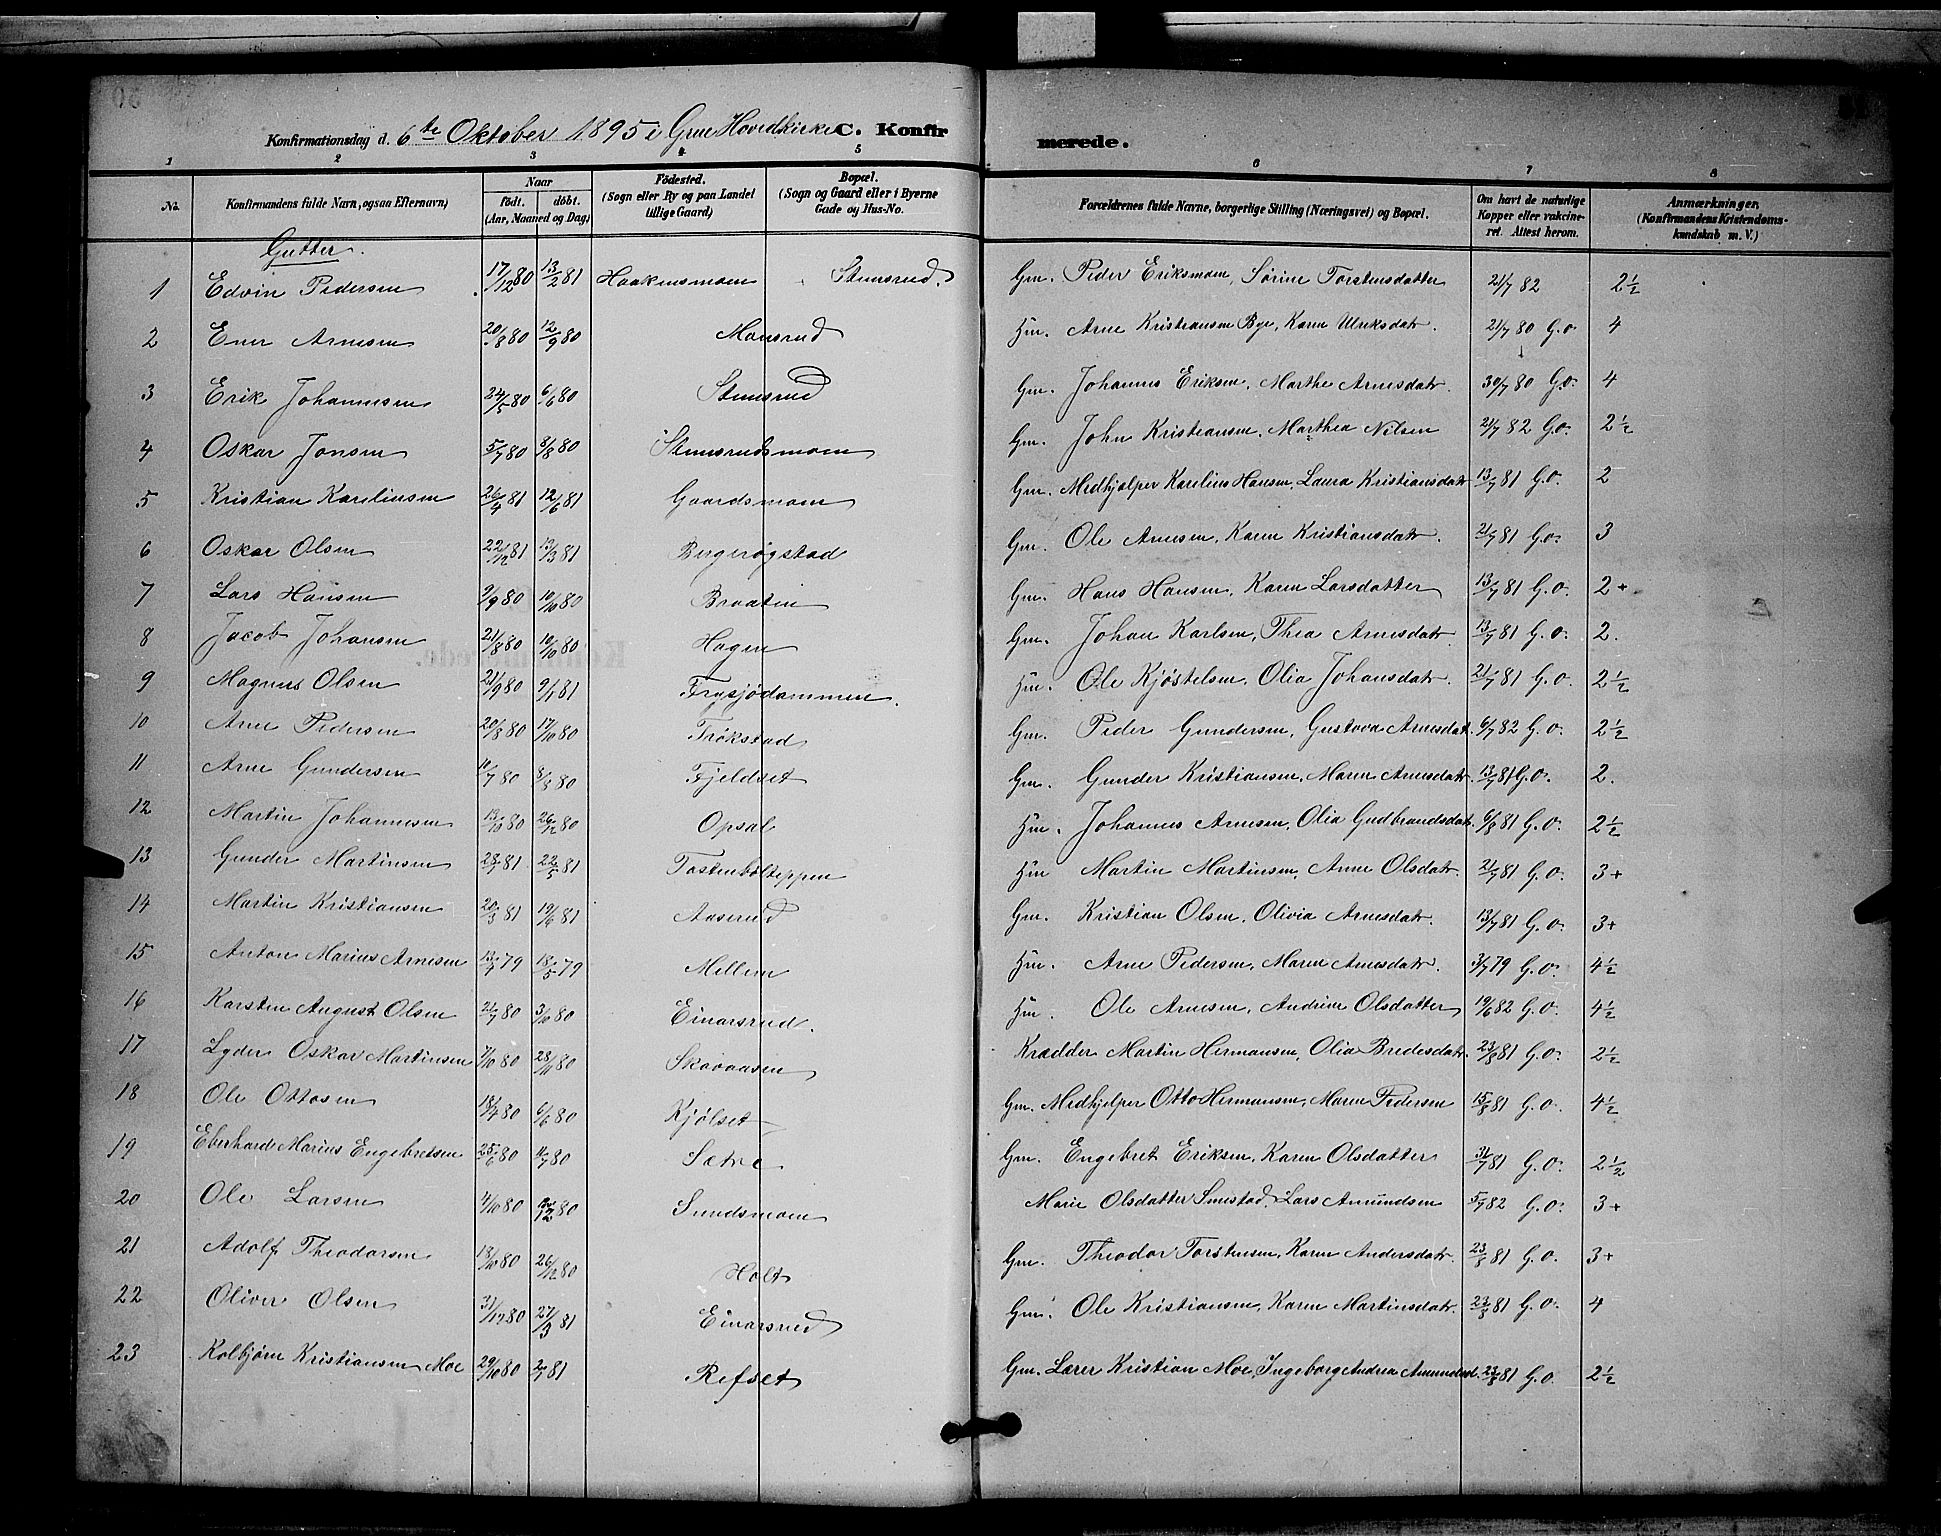 Konfirmationsdag d. 6te Oktober 1895 i Grue Hovedkirke C. Konfirmerede.
1 2 3 4 5 6 7 8
No.
Konfirmandens fulde Navn, ogsaa Efternavn)
Naar
födt. döbt.
(Aar, Maaned og Dag)
Födested.
(Sogn eller By og paa Landet
tillige Gaard)
Bopæl.
(Sogn og Gaard eller i Byerne
Gade og Hus-No.
Forældrenes fulde Navne, borgerlige Stilling (Næringsvei) og Bopæl.
Om havt de naturlige
Kopper eller vakcine-
ret. Attest herom.
Anmærkninger.
(Konfirmandens Kristendoms-
kundskab m. V.)
Gutter.
1 Edvin Pedersen 17/12 80 13/2 81 Haakensmoen Stemsrud. Gm. Peder Eriksmoen, Sørine Torstensdatter 21/7 82 2½
2 Ener Arnesen 20/8 80 12/9 80 Monsrud Hm. Arne Kristiansen Bye, Karen Ulriksdatr. 21/7 80 G.o. 4
3 Erik Johannesen 24/5 80 6/6 80 Stemsrud Gm. Johannes Eriksen, Marthe Arnesdatr. 30/7 80 G.o. 4
4 Oskar Jonsen 5/7 80 8/8 80 Stemsrudsmoen Gm. John Kristiansen, Marthea Nilsen 21/7 82 G.o. 2½
5 Kristian Karelinsen 26/4 81 12/6 81 Gaardsmoen Gm. Medhjælper Karelius Hansen, Laura Kristiansdatr 13/7 81 G.o. 2
6 Oskar Olsen 22/12 81 13/3 81 Bergerøgstad Gm. Ole Arnesen, Karen Kristiansdatr. 21/7 81 G.o. 3
7 Lars Hansen 9/9 80 10/10 80 Braaten Gm. Hans Hansen, Karen Larsdatter 13/7 81 G.o. 2+
8 Jacob Johansen 21/8 80 10/10 80 Hagen Gm. Johan Karlsen, Thea Arnesdatr 13/7 81 G.o. 2.
9 Magnus Olsen 21/9 80 9/1 81 Frysjødammen. Hm. Ole Kjøstelsen, Olia Johansdatr. 21/7 81 G.o. 2½
10 Arne Pedersen 20/8 80 17/10 80 Trøkstad Gm. Peder Gundersen, Gustava Arnesdat. 6/7 82 G.o. 2½
11 Arne Gundersen 11/7 80 8/8 80 Fjeldset Gm. Gunder Kristiansen, Maren Arnesdatr. 13/7 81 G.o. 2.
12 Martin Johannesen 13/10 80 26/12 80 Opsal Hm. Johannes Arnesen, Olia Gudbrandsdatr. 6/8 81 G.o. 2½
13 Gunder Martinsen 28/1 81 22/5 81 Tostenbølteppen Hm Martin Martinsen, Anne Olsdatr. 21/7 81 G.o. 3+
14 Martin Kristiansen 20/3 81 19/6 81 Aaserud Gm. Kristian Olsen, Olivia Arnesdatr. 13/7 81 G.o. 3+
15 Anton Marius Arnesen 13/1 79 18/5 79 Mellem Hm. Arne Pedersen, Maren Arnesdatr. 3/7 79 G.o. 4½
16 Karsten August Olsen 21/7 80 3/10 80 Einarsrud. Hm. Ole Arnesen, Andrine Olsdatter 19/6 82 G.o. 4½
17 Lyder Oskar Martinsen 7/10 80 28/11 80 Skovaasen Kræder Martin Hermansen, Olia Bredesdatr. 23/8 81 G.o. 2½
18 Ole Ottosen 18/4 80 6/6 80 Kjølset Gm. Medhjelper Otto Hermansen, Maren Pedersen 15/8 81 G.o. 4½
19 Eberhard Marius Engebretsen 25/6 80 11/7 80 Sætre Gm. Engebret Eriksen, Karen Olsdatter 31/7 81 G.o. 2½
20 Ole Larsen 1/10 80 80 Sundsmoen Marie Olsdatter Smestad, Lars Amundsen 5/7 82 G.o. 3+
21 Adolf Theodorsen 18/10 80 26/12 80 Holt Gm. Theodor Torstensen, Karen Andersdatr. 23/8 81 G.o. 3+
22 Oliver Olsen 31/12 80 27/3 81 Einarsrud Gm. Ole Kristiansen, Karen Martinsdatr. 23/8 81 G.o. 4
23 Kolbjørn Kristiansen Moe 29/10 80 2/1 81 Refset Gm. Lærer Kristian Moe, Ingeborg Andrea Amundsd. 23/8 81 G.o 2½